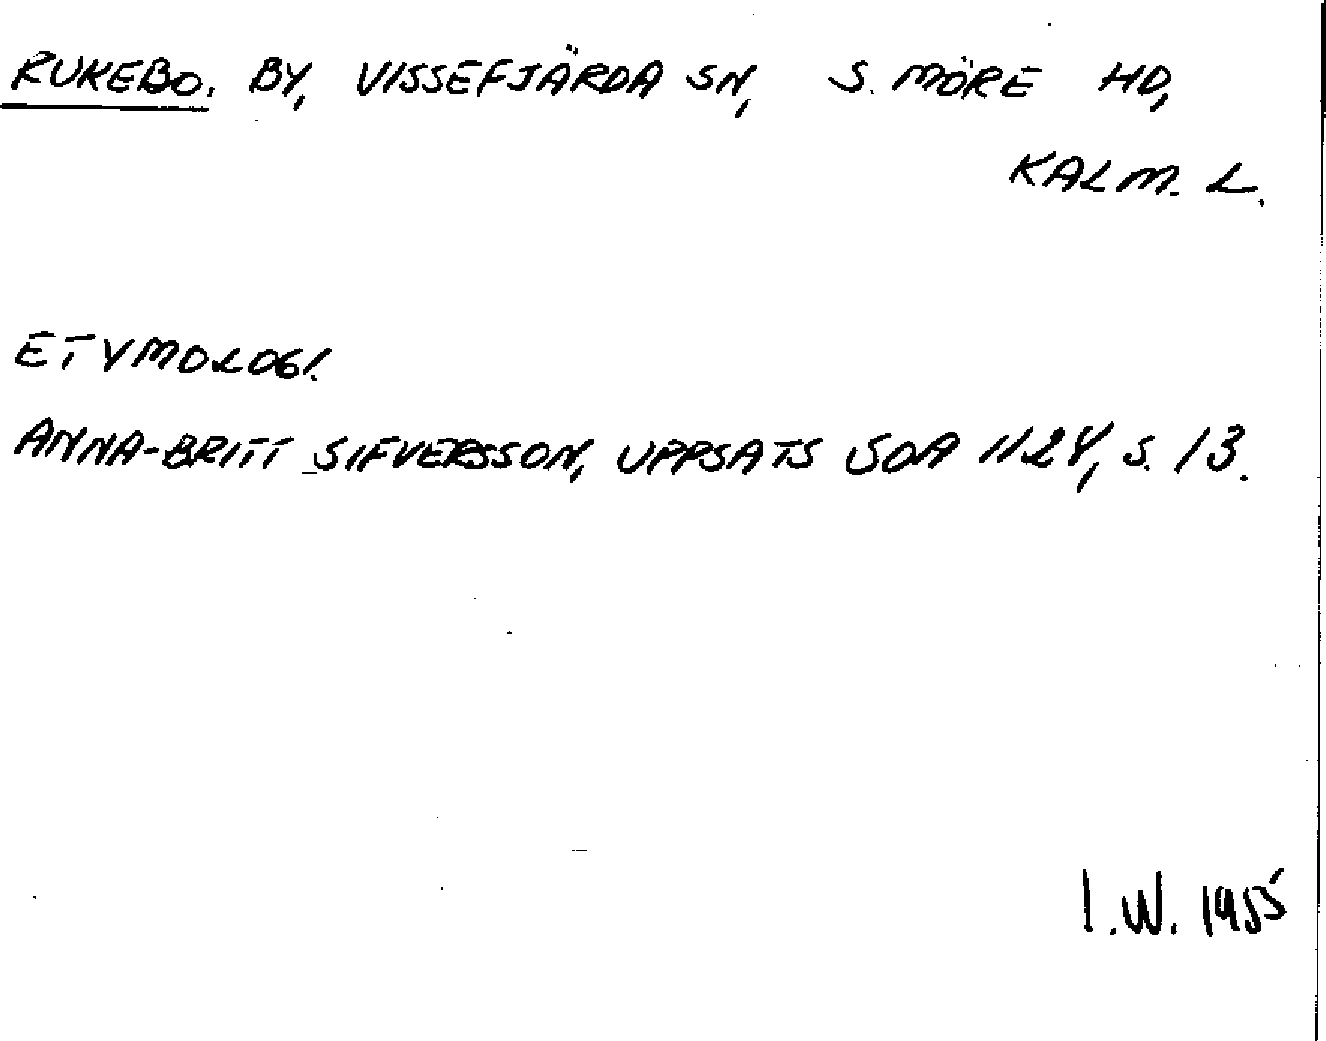 RUKEBO. BY, VISSEFJÄRDA SN, S. MÖRE HD,
KALM. L.
ETYMOLOGI.
ANNA-BRITT SIFVERSSON, UPPSATS SOA 1124, S. 13.
I.W. 1955